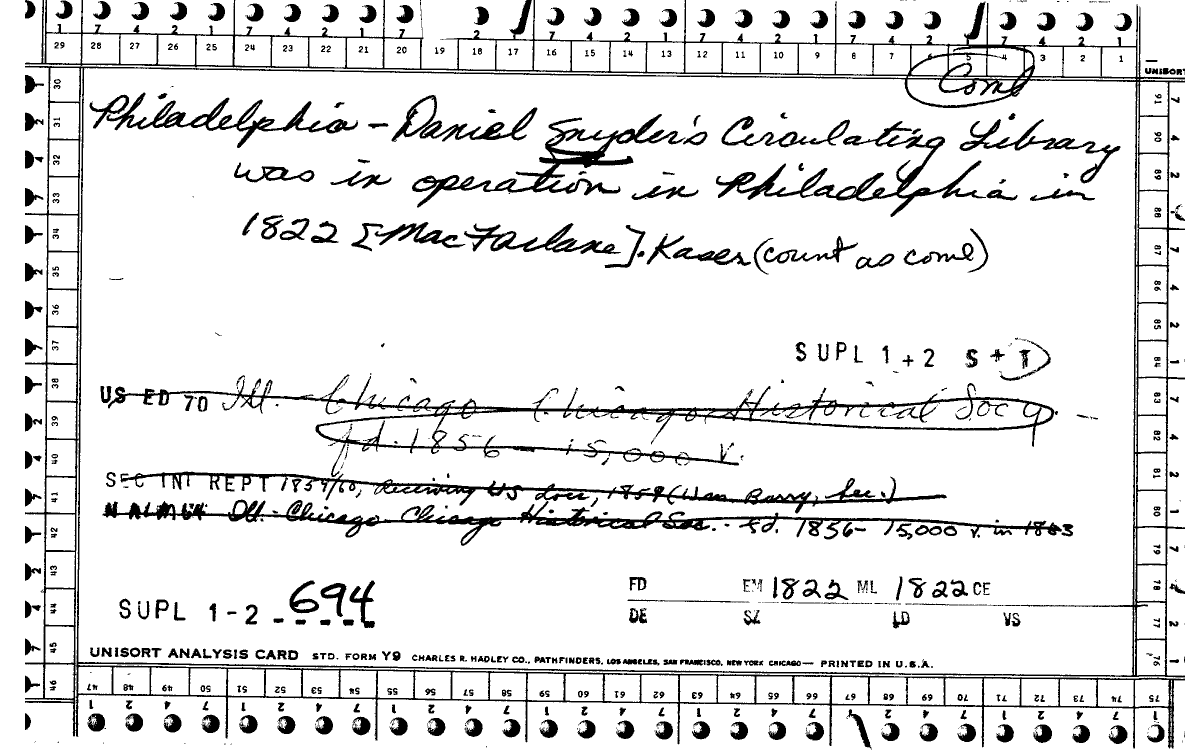 1 7 4 2 1 7 4 2 1 7 2 1 7 4 2 1 7 4 2 1 7 4 2 1 7 4 2 1
29 28 27 26 25 24 23 22 21 20 19 18 17 16 15 14 13 12 11 10 9 8 7 6 5 4 3 2 1
UNISORT
Coml
Philadelphia - Daniel Snyder's Circulating Library
was in operation in Philadelphia in
1822 [MacFarlane]. Kaser (count as coml)
SUPL 1+2 S+T
US ED 70 Ill. - Chicago - Chicago Historical Socy. -
fd. 1856 - 15,000 v.
SEC INT REPT 1859/60, receiving US docs, 1859 (Wm Barry, Sec.)
N ALM 64 Ill. - Chicago Chicago Historical Soc. - fd. 1856 - 15,000 v. in 1863
FD EM 1822 ML 1822 CE
SUPL 1-2 694
DE SZ LD VS
UNISORT ANALYSIS CARD STD. FORM Y9 CHARLES R. HADLEY CO., PATHFINDERS, LOS ANGELES, SAN FRANCISCO, NEW YORK CHICAGO — PRINTED IN U.S.A.
30 31 32 33 34 35 36 37 38 39 40 41 42 43 44 45 46
91 90 89 88 87 86 85 84 83 82 81 80 79 78 77 76
47 48 49 50 51 52 53 54 55 56 57 58 59 60 61 62 63 64 65 66 67 68 69 70 71 72 73 74 75